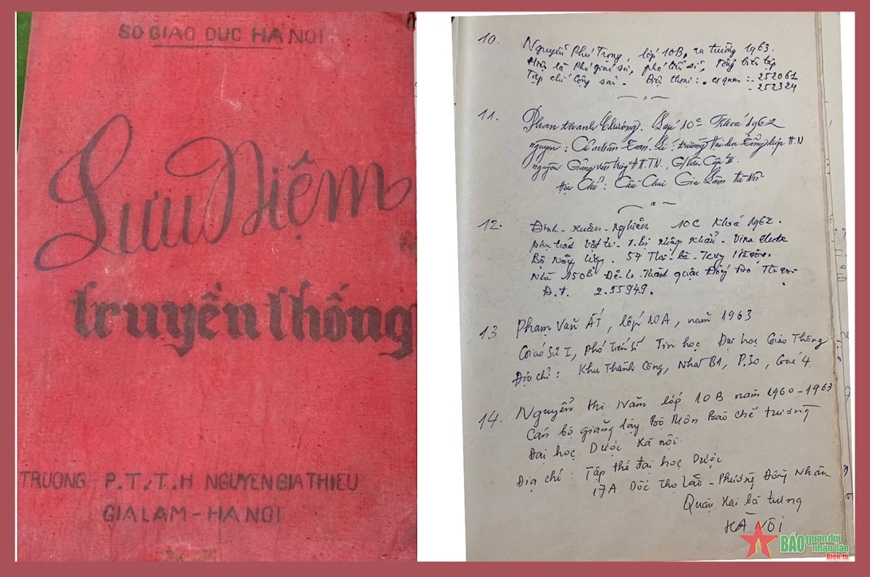 SO GIAO DUC HA NOI
Lưu Niệm
truyền thống
TRUONG P.T.T.H NGUYEN GIA THIEU
GIA LAM - HA NOI
10. Nguyễn Phú Trọng, lớp 10B, ra trường 1963.
Hiện là Phó giáo sư, phó tiến sĩ, Tổng biên tập
Tạp chí Cộng sản. Điện thoại: cơ quan: 252061
252324
11. Phan Thanh Chương. Lớp 10C Khoá 1962
nguyên:
nguyên Giảng viên
Địa Chỉ: Cầu Chui Gia Lâm Hà Nội
12. Đinh - Xuân - Nghiêm 10C Khoá 1962.
phụ trách vật tư - T.bị nhập khẩu.
Bộ Năng lượng. 54
Nhà 150B Đê La Thành quận Đống Đa
Đ.T. 2.55949.
13. Phạm Văn Ất, lớp 10A, năm 1963
Giáo Sư I, Phó Tiến Sĩ Tin học Đại học Giao Thông
Địa chỉ: Khu Thành Công, Nhà B1, P.30, Gác 4
14. Nguyễn Thị Năm lớp 10B năm 1960-1963
Cán bộ giảng dạy Bộ Môn Bào chế trường
Đại học Dược Hà nội
Địa chỉ: Tập thể đại học Dược
17A Dốc Thọ Lão - Phường Đồng Nhân
Quận Hai bà trưng
HÀ NỘI
BÁO quân đội
nhân dân
Điện tử